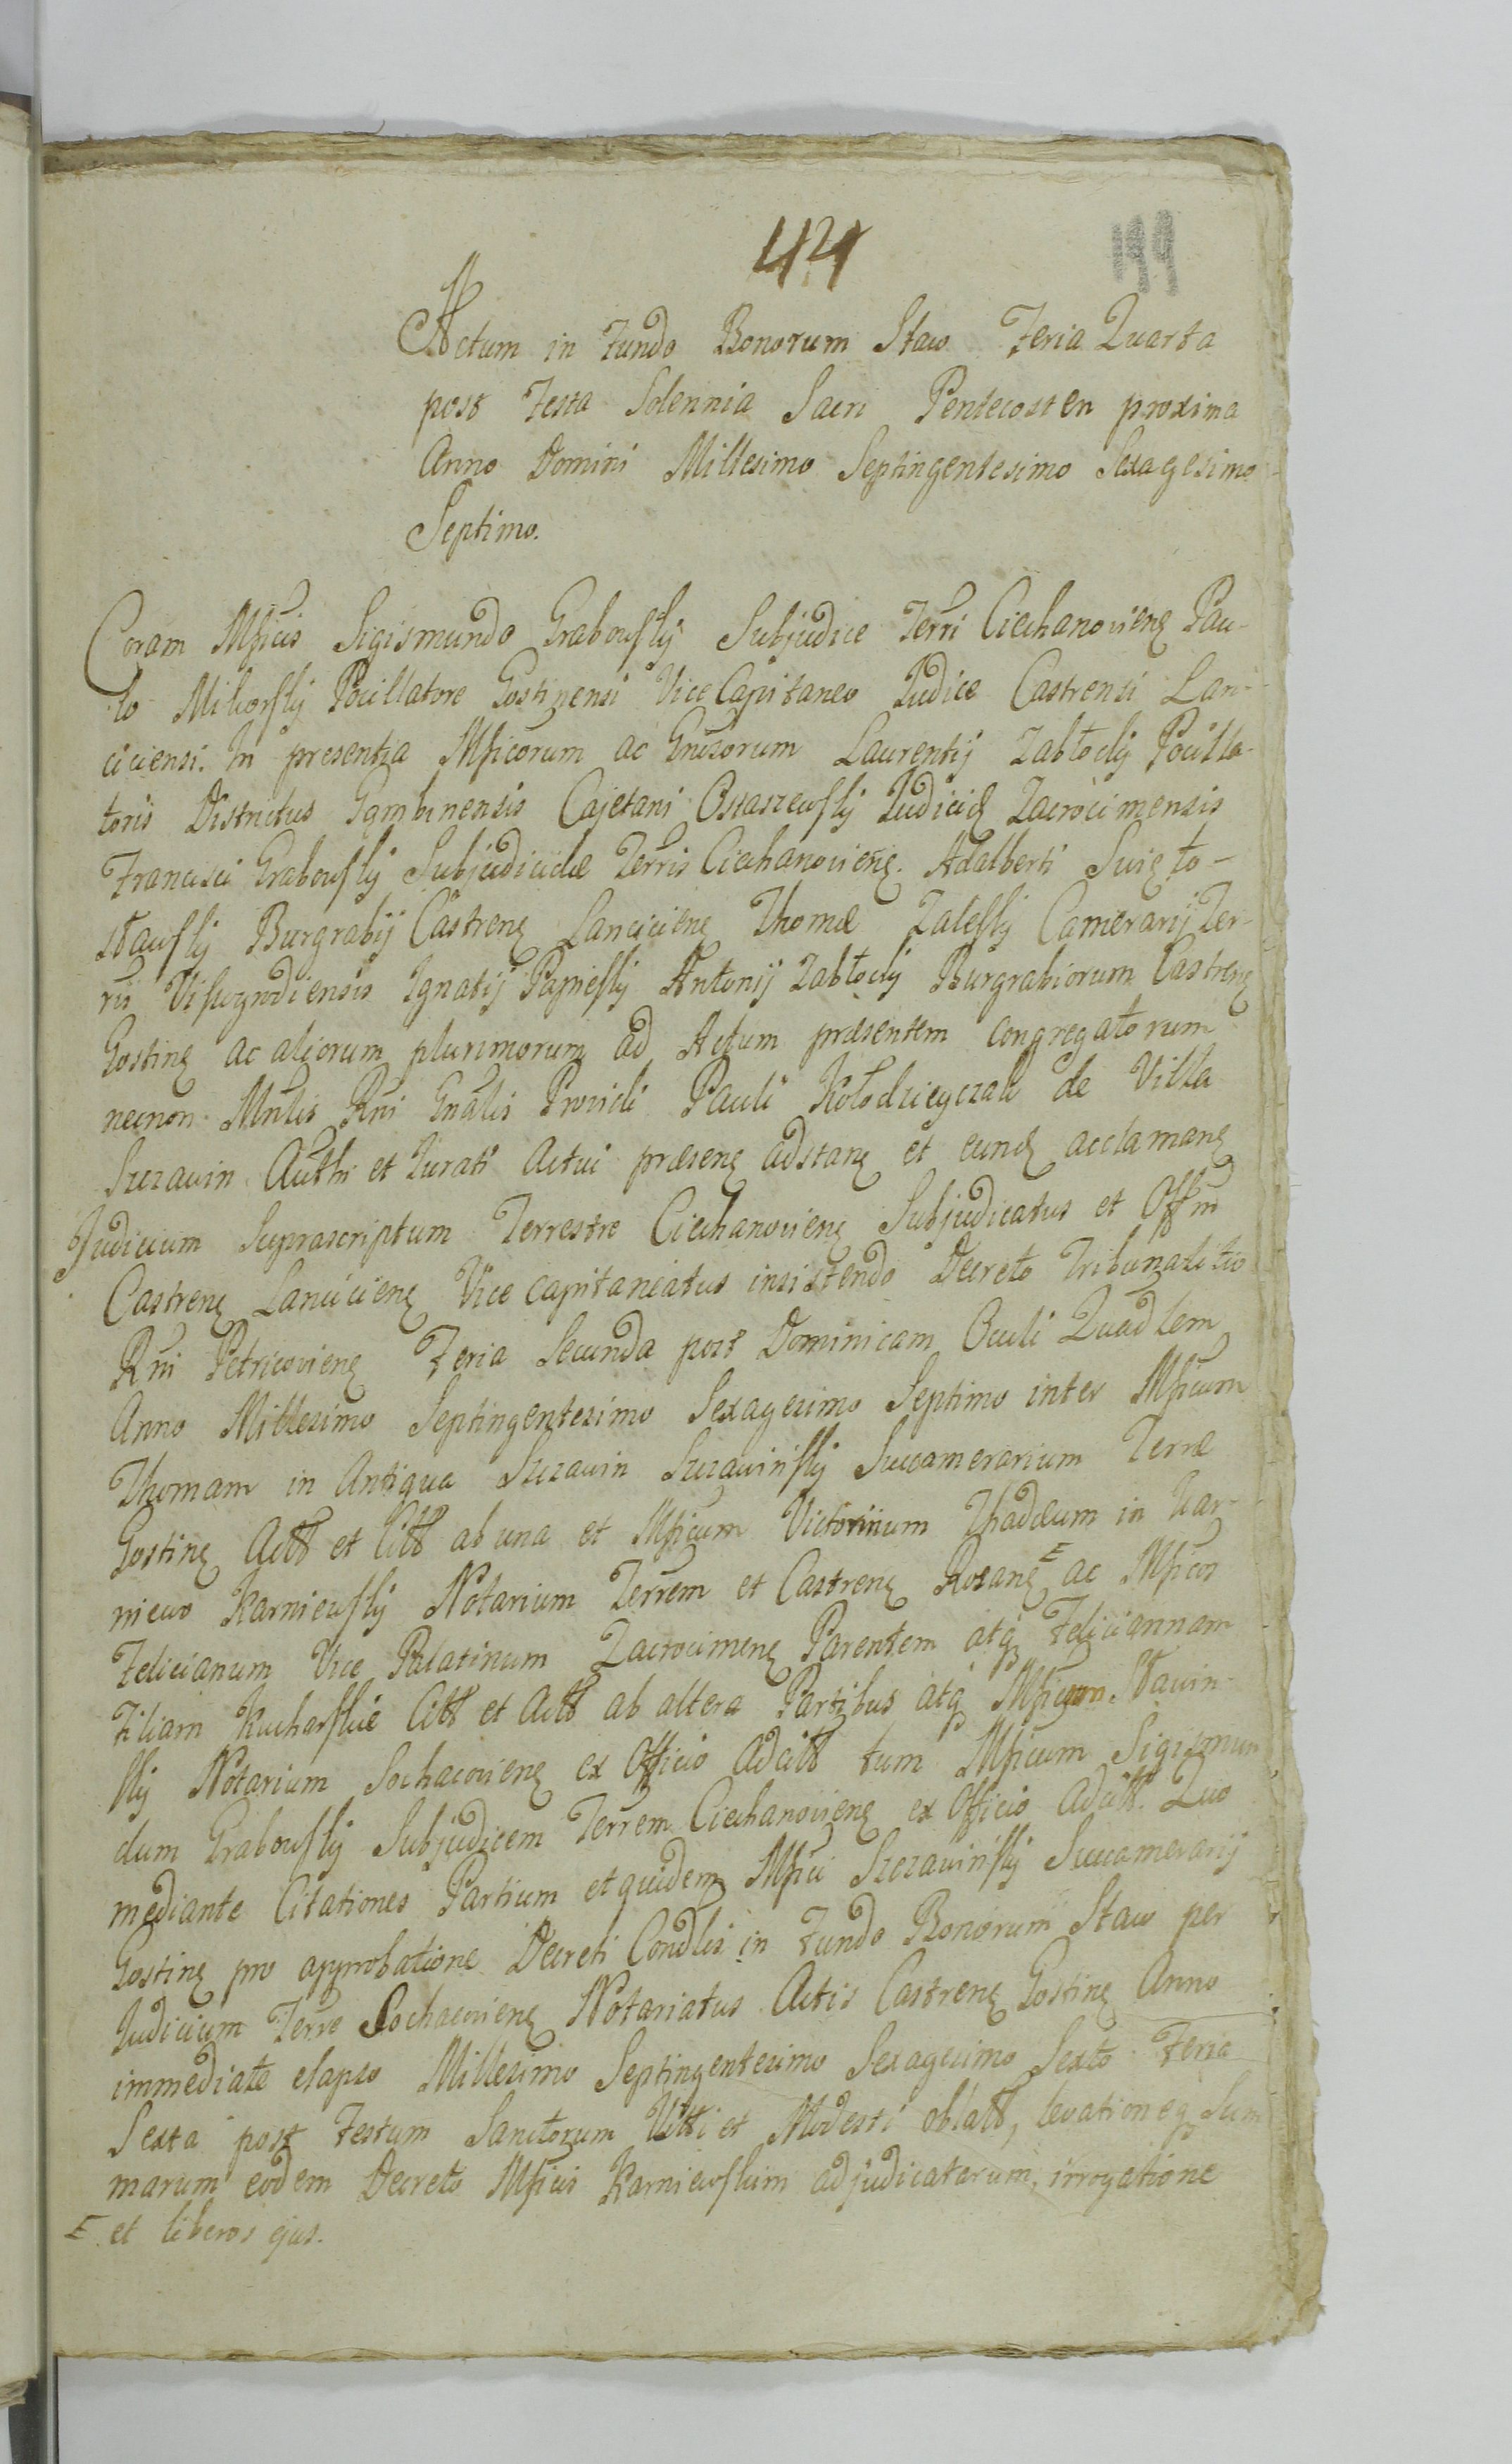 44
Actum in Fundo Bonorum Staw Feria Quarta
post Festa Solennia Sacri Pentecosten proxima
Anno Domini Millesimo Septingentesimo Sexagesimo
Septimo.
Coram Mficis Sigismundo Grabowsky Subjudice Terri Ciechanoviens Pau-
lo Milewsky Pocillatore Gostinensi Vice Capitaneo Judice Castrensi Lan-
ciciensi. In presentia Mficorum ac Gnosorum Laurentij Zabłocky Pocilla-
toris Districtus Gambinensis Cajetani Ostaszewsky Judicid Zacrocimensis
Francisci Grabowsky Subjudicidæ Terris Ciechanoviens. Adalberti Swięto-
sławsky Burgrabij Castrens Lanciciens Thomæ Zalesky Camerarij Ter-
ris Vissogrodiensis Ignatij Papiesky Antonij Zabłocky Burgrabiorum Castrens
Gostins ac aliorum plurimorum ad Actum præsentem congregatorum
necnon Mnlis Rni Gnalis Providi Pauli Kołodzieyczak de Villa
Szczawin Authi et Jurati Actui præsens adstans et eund acclamans
Judicium Suprascriptum Terrestre Ciechanoviens Subjudicatus et Offm
Castrens Lanciciens Vice capitaneatus insistendo Decreto Tribunalitio
Rni Petricoviens Feria Secunda post Dominicam Oculi Quadlem
Anno Millesimo Septingentesimo Sexagesimo Septimo inter Mficum
Thomam in Antiqua Szczawin Szczawinsky Succamerarium Terræ
Gostins Actt et Citt ab una et Mficum Victorinum Thadæum in Kar-
niewo Karniewsky Notarium Terrem et Castrens Rozans E ac Mficos
Felicianum Vice Palatinum Zacrocimens Parentem atq Feliciannam
Filiam Kucharskie Citt et Actt ab altera Partibus atq Mficum Stawin-
sky Notarium Sochacoviens ex Officio Adcitt tum Mficum Sigismun
dum Grabowsky Subjudicem Terrem Ciechanoviens ex Officio Adcitt. Quo
mediante Citationes Partium et quidem Mfici Szczawinsky Succamerarij
Gostins pro approbatione Decreti Condlis in Fundo Bonorum Staw per
Judicium Terre Sochacoviens Notariatus Actis Castrens Gostins Anno
immediate elapso Millesimo Septingentesimo Sexagesimo Sexto Feria
Sexta post Festum Sanctorum Viti et Modesti oblatt, levationeq Sum
marum eodem Decreto Mficis Karniewskim adjudicatarum, irrogatione
E et liberos ejus.